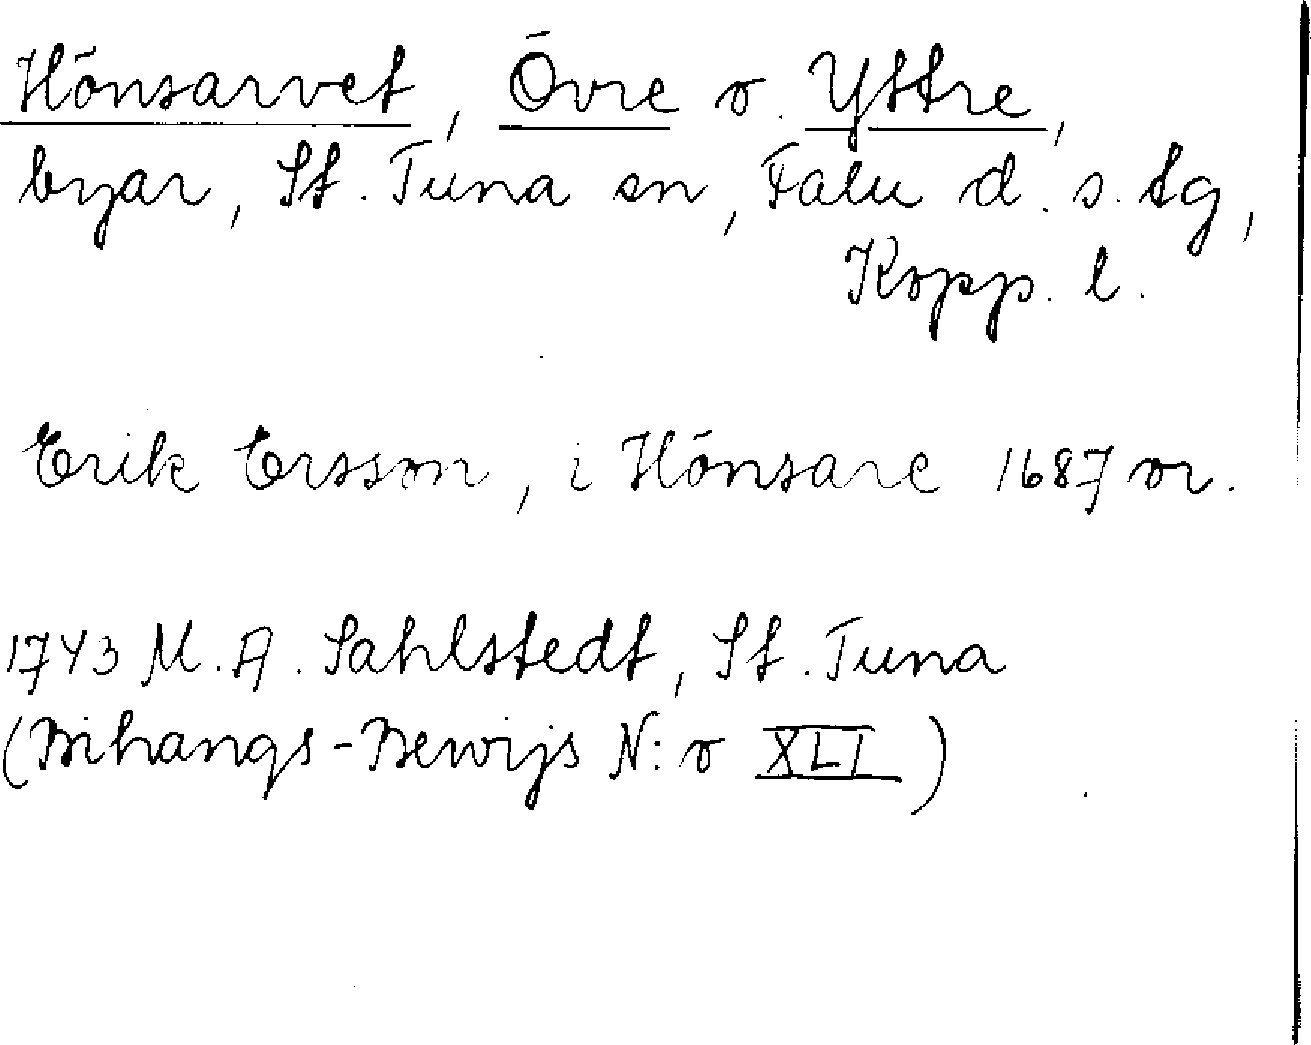 Hönsarvet, Övre o. Yttre,
byar, St. Tuna sn, Falu d. s. tg,
Kopp. l.
Erik Ersson, i Hönsare 1687 or.
1743 M. A. Sahlstedt, St. Tuna
(Bihangs-Bewijs N:o XLI)